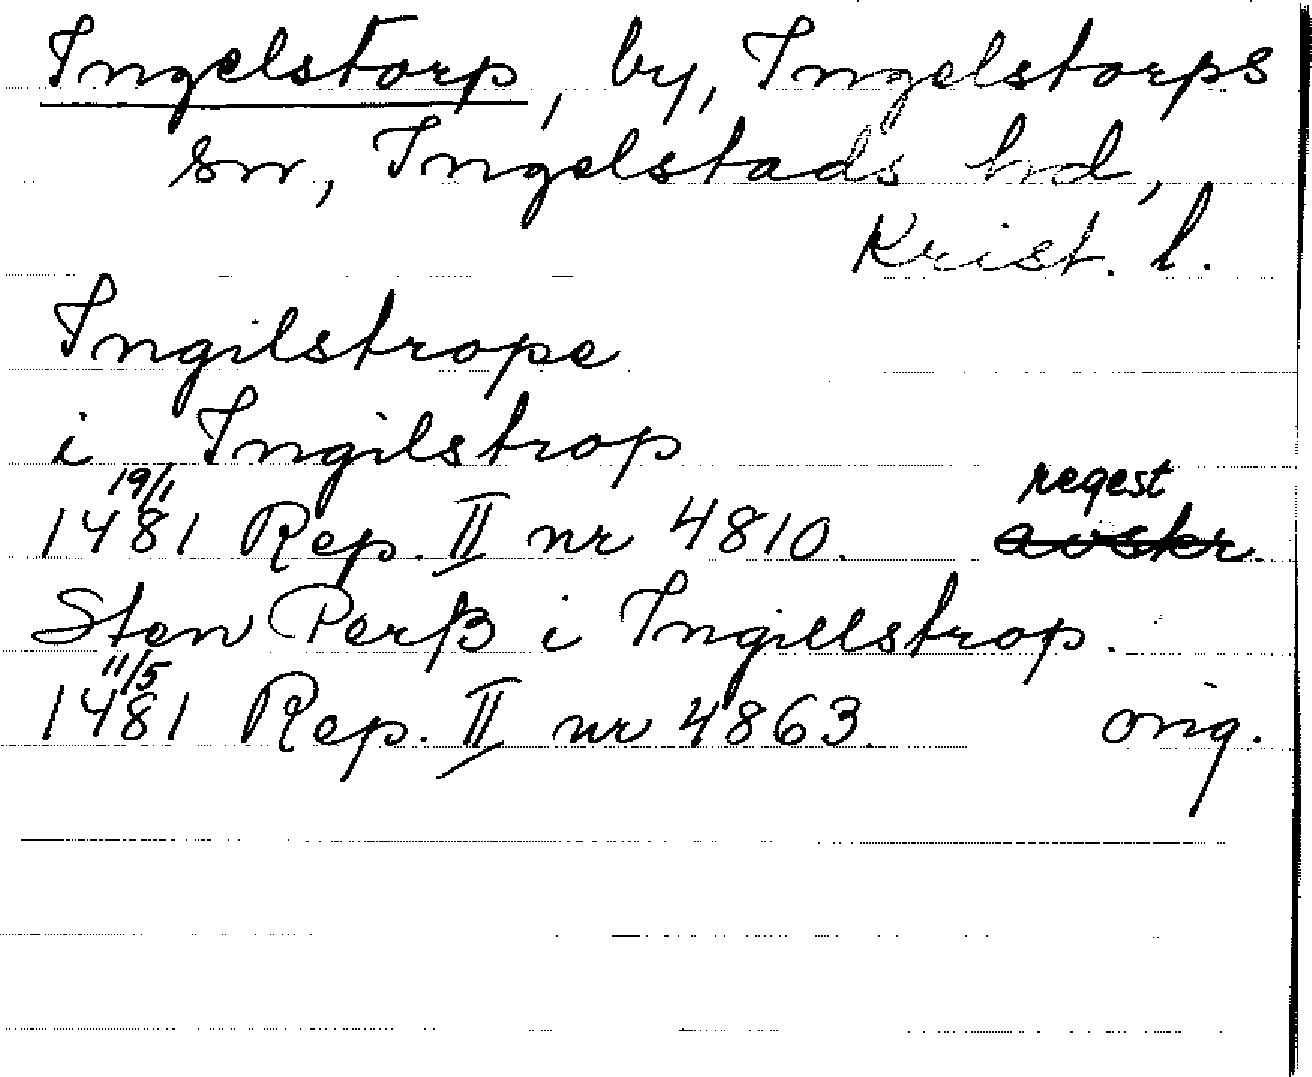 Ingelstorp, by, Ingelstorps
sn, Ingelstads hd,
Krist. l.
Ingilstrope
i Ingilstrop
19/1 regest
1481 Rep. II nr 4810. avskr.
Sten Perß i Ingillstrop.
11/5
1481 Rep. II nr 4863. orig.